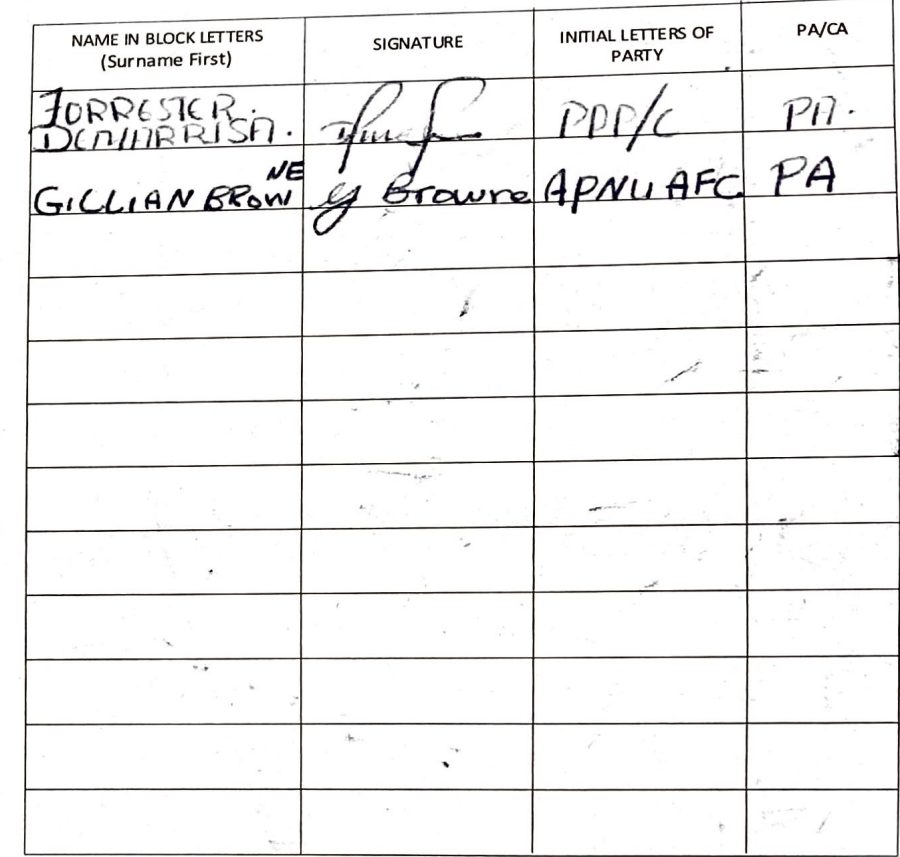 NAME IN BLOCK LETTERS
(Surname First)
SIGNATURE
INITIAL LETTERS OF
PARTY
PA/CA
FORRESTER.
PPP/C
PA.
GILLIAN BROWNE
G Browne
APNU AFC
PA